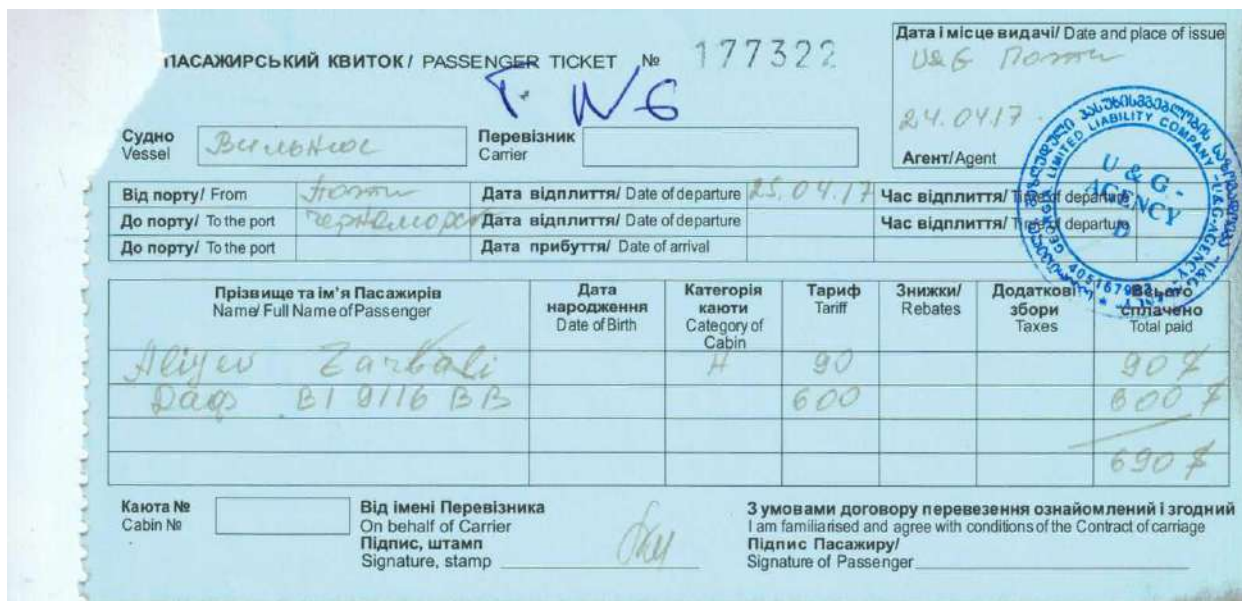 Дата і місце видачі/ Date and place of issue
ПАСАЖИРСЬКИЙ КВИТОК / PASSENGER TICKET № 177322
U&G Поти
24.04.17
Агент/Agent
Судно
Vessel
Вильнюс
Перевізник
Carrier
Від порту/ From Поти Дата відплиття/ Date of departure 25.04.17 Час відплиття/ Time of departure
До порту/ To the port Черноморск Дата відплиття/ Date of departure Час відплиття/ Time of departure
До порту/ To the port Дата прибуття/ Date of arrival
U & G -
AGENCY
LIMITED LIABILITY COMPANY
Прізвище та ім’я Пасажирів
Name/ Full Name of Passenger
Дата
народження
Date of Birth
Категорія
каюти
Category of
Cabin
Тариф
Tariff
Знижки/
Rebates
Додаткові
збори
Taxes
Всього
сплачено
Total paid
Aliyev Zarbali 90 90 $
Даф BI 9116 BB 600 600 $
690 $
Каюта №
Cabin №
Від імені Перевізника
On behalf of Carrier
Підпис, штамп
Signature, stamp
З умовами договору перевезення ознайомлений і згодний
I am familiarised and agree with conditions of the Contract of carriage
Підпис Пасажиру/
Signature of Passenger